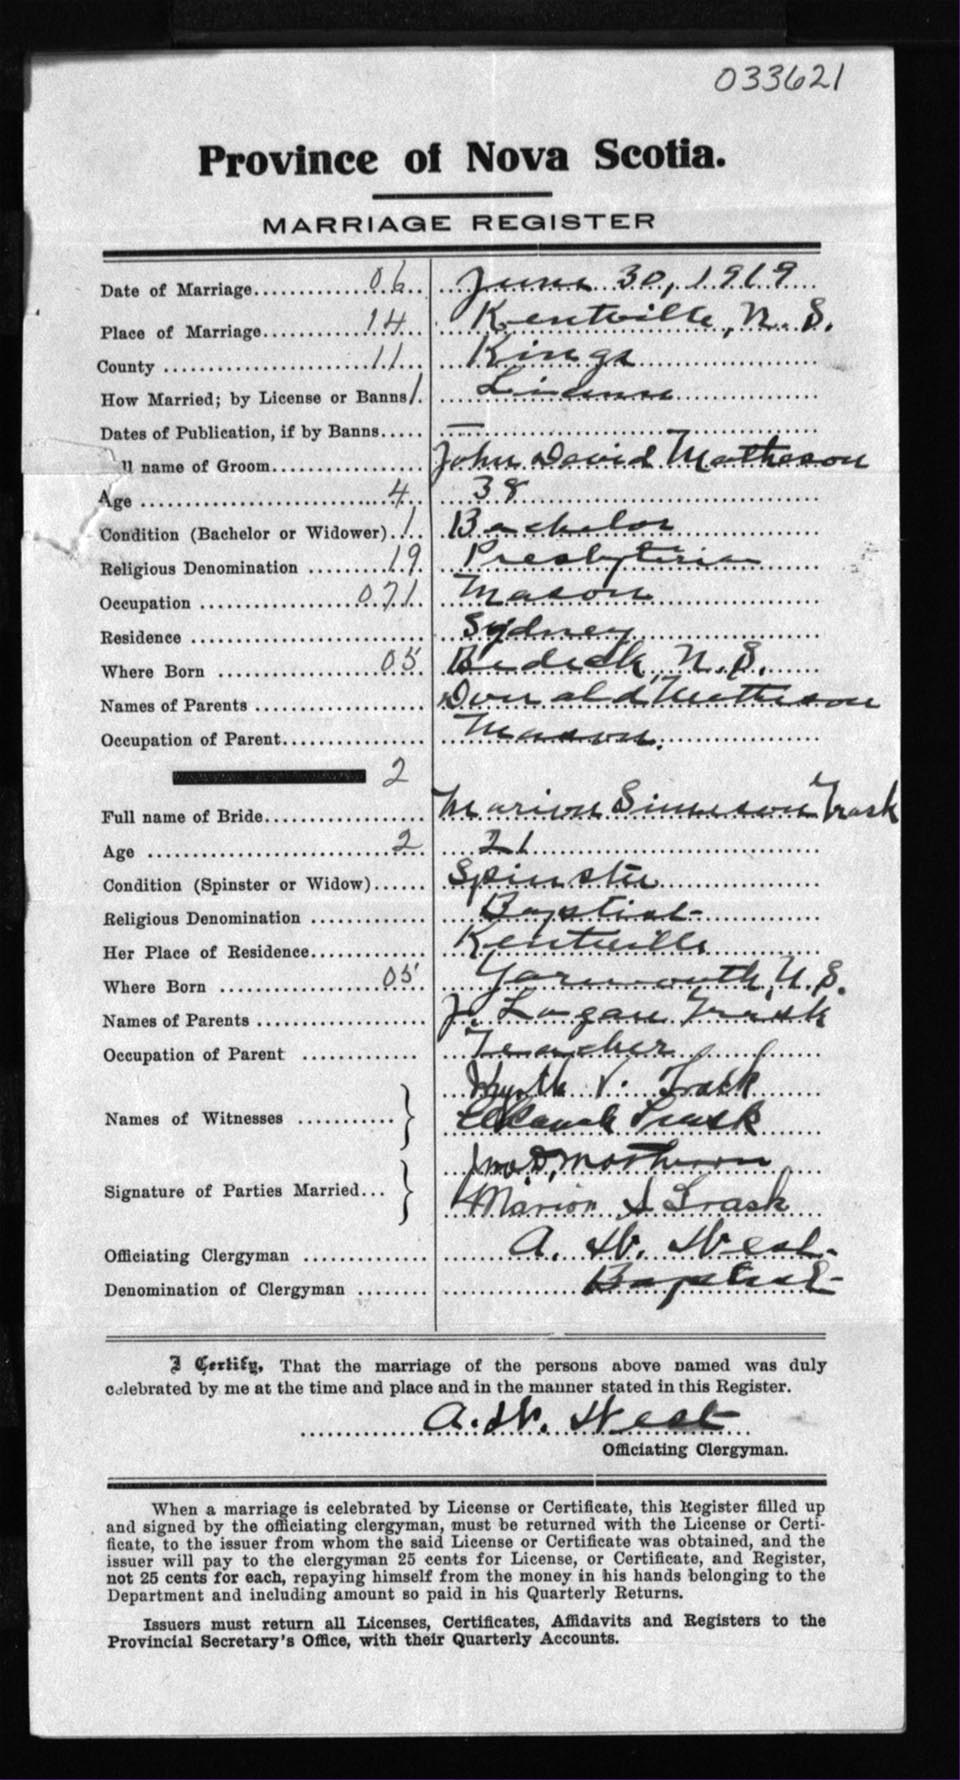 033621
Province of Nova Scotia.
MARRIAGE REGISTER
Date of Marriage 06 June 30, 1919
Place of Marriage 14 Kentville, N. S.
County 11 Kings
How Married; by License or Banns 1. License
Dates of Publication, if by Banns —
ll name of Groom John David Matheson
Age 4 38
Condition (Bachelor or Widower) 1 Bachelor
Religious Denomination 19 Presbyterian
Occupation 071 Mason
Residence Sydney
Where Born 05 N. S.
Names of Parents Donald Matheson
Occupation of Parent Mason.
2
Full name of Bride Marion Simeson Trask
Age 2 21
Condition (Spinster or Widow) Spinster
Religious Denomination Baptist
Her Place of Residence Kentville
Where Born 05 Yarmouth, N. S.
Names of Parents J. Logan Trask
Occupation of Parent Teacher
V. Trask
Names of Witnesses Trask
Jno. D. Matheson
Signature of Parties Married... Marion S Trask
Officiating Clergyman A. W. West
Denomination of Clergyman Baptist
I Certify, That the marriage of the persons above named was duly
celebrated by me at the time and place and in the manner stated in this Register.
A. W. West
Officiating Clergyman.
When a marriage is celebrated by License or Certificate, this Register filled up
and signed by the officiating clergyman, must be returned with the License or Certi-
ficate, to the issuer from whom the said License or Certificate was obtained, and the
issuer will pay to the clergyman 25 cents for License, or Certificate, and Register,
not 25 cents for each, repaying himself from the money in his hands belonging to the
Department and including amount so paid in his Quarterly Returns.
Issuers must return all Licenses, Certificates, Affidavits and Registers to the
Provincial Secretary's Office, with their Quarterly Accounts.